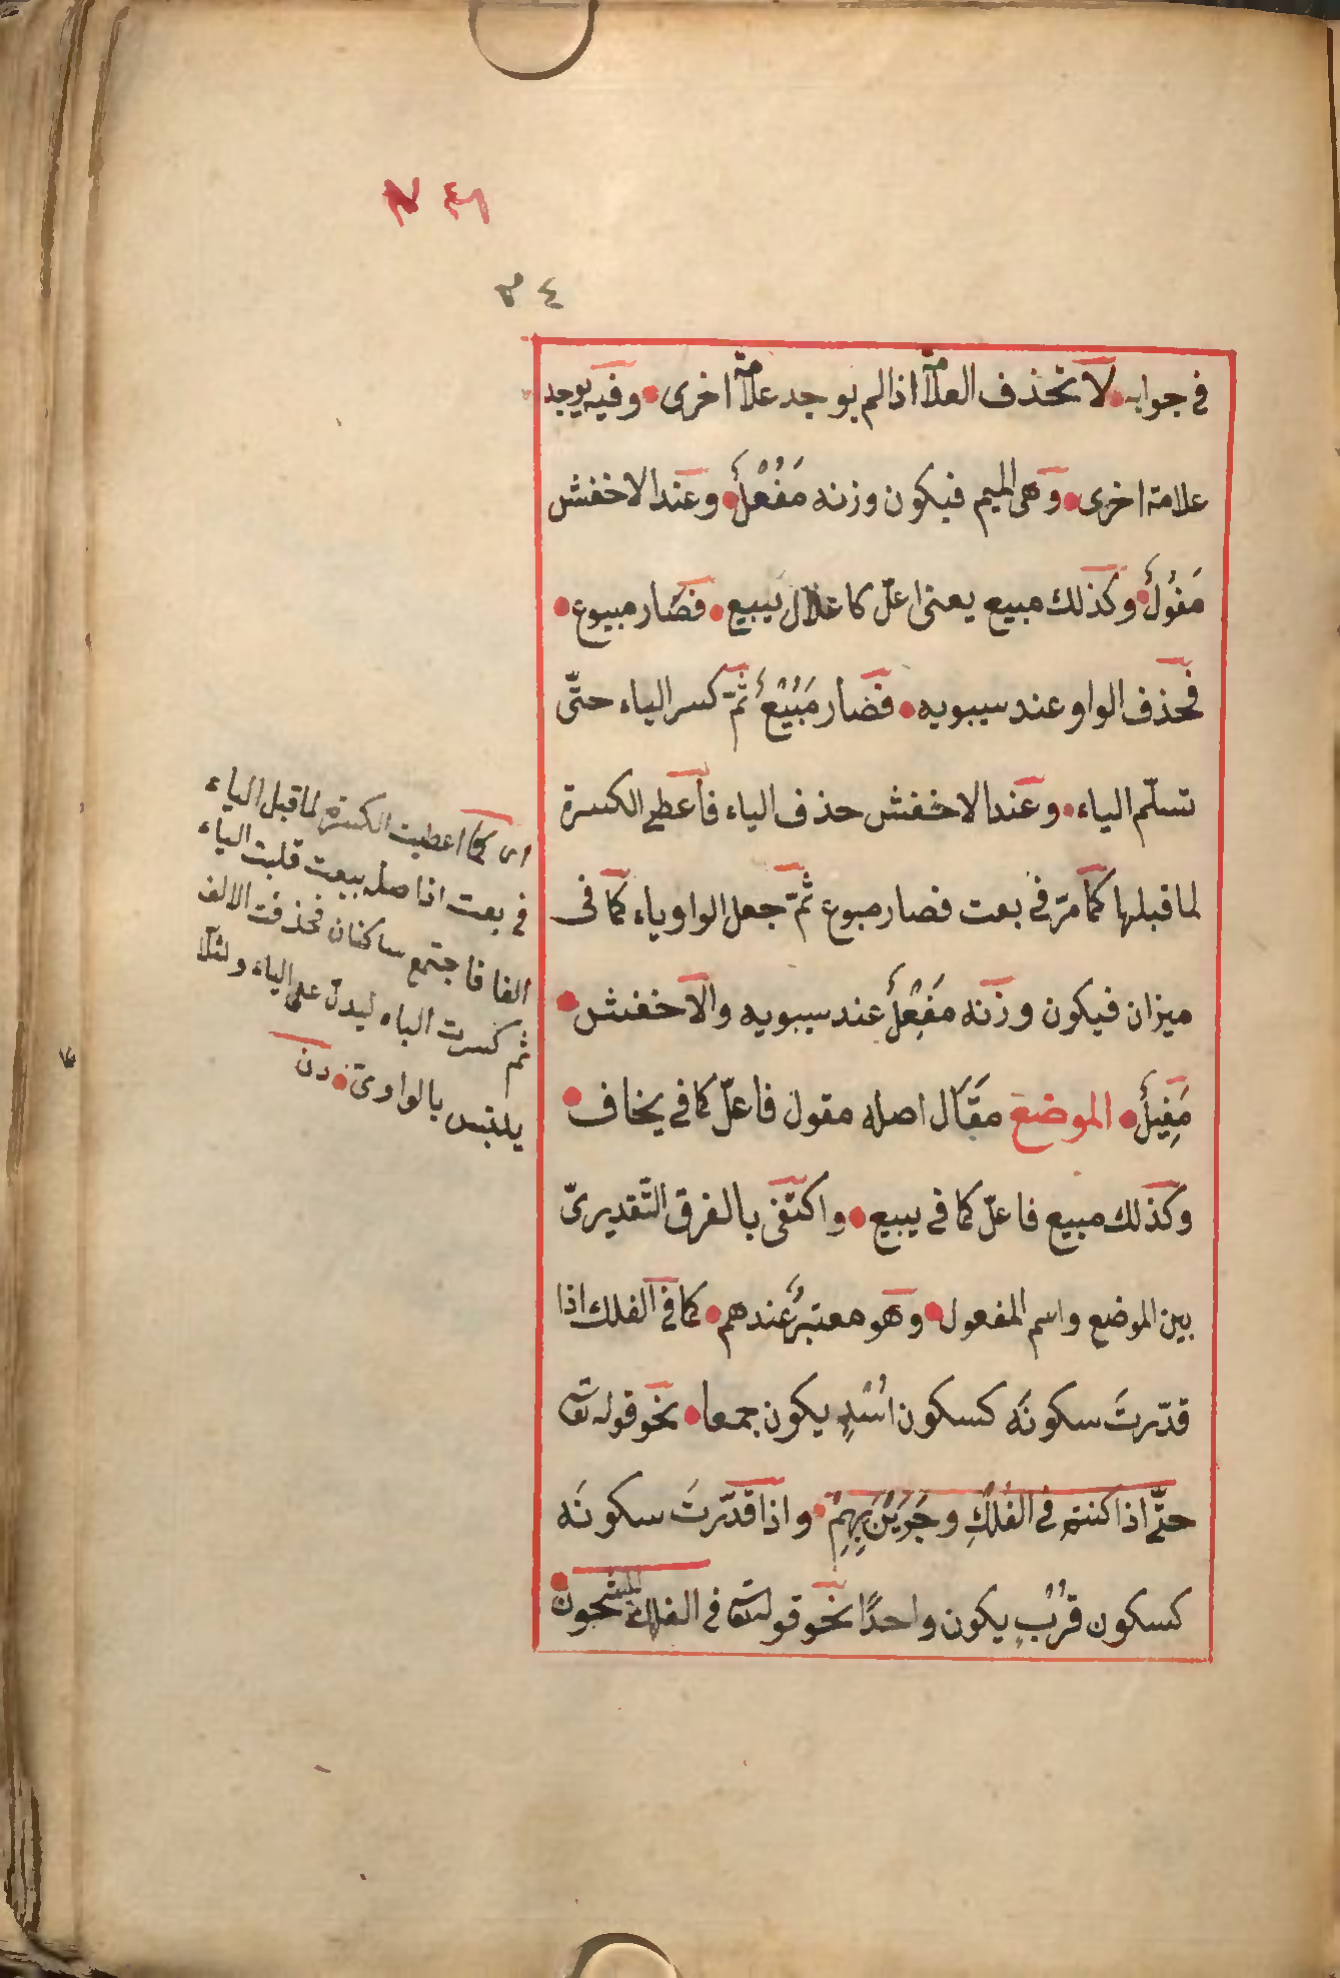 ٣٤
في جوابه لا تحذف العلامة اذا لم يوجد علامة اخرى وفيه يوجد
علامة اخرى وهى الميم فيكون وزنه مَفُعْلٌ وعند الاخفش
مَفُولٌ وكذلك مبيع يعنى اعلّ كاعلال يَبيع فصار مبيوع
فحذف الواو عند سيبويه فصار مَبُيْعٌ ثمّ كسر الباء حتّى
تسلّم الياء وعند الاخفش حذف الياء فاعطى الكسرة
لما قبلها كما مرّ في بعت فصار مبوع ثمّ جعل الواو ياء كما فى
ميزان فيكون وزنه مَفِعْلٌ عند سيبويه والاخفش
مَفِيلٌ الموضع مقال اصله مقول فاعلّ كما في يخاف
وكذلك مبيع فاعلّ كما في يبيع واكتفى بالفرق التّقديرىّ
بين الموضع واسم المفعول وهو معتبرٌ عندهم كما في الفلك اذا
قدّرتَ سكونَه كسكون اُسْدٍ يكون جمعا نحو قوله تعالى
حتّى اذا كنتم في الفُلْكِ وجَرَيْنَ بِهِمْ واذا قدّرتَ سكونَه
كسكون قُرْبٍ يكون واحدًا نحو قوله تعالى في الفلك المشحون
اى كما اعطيت الكسرة لما قبل الياء
في بعت اذ اصله بيعت قلبت الياء
الفا فاجتمع ساكنان فحذفت الالف
ثم كسرت الباء ليدلّ على الياء ولئلّا
يلتبس بالواوىّ